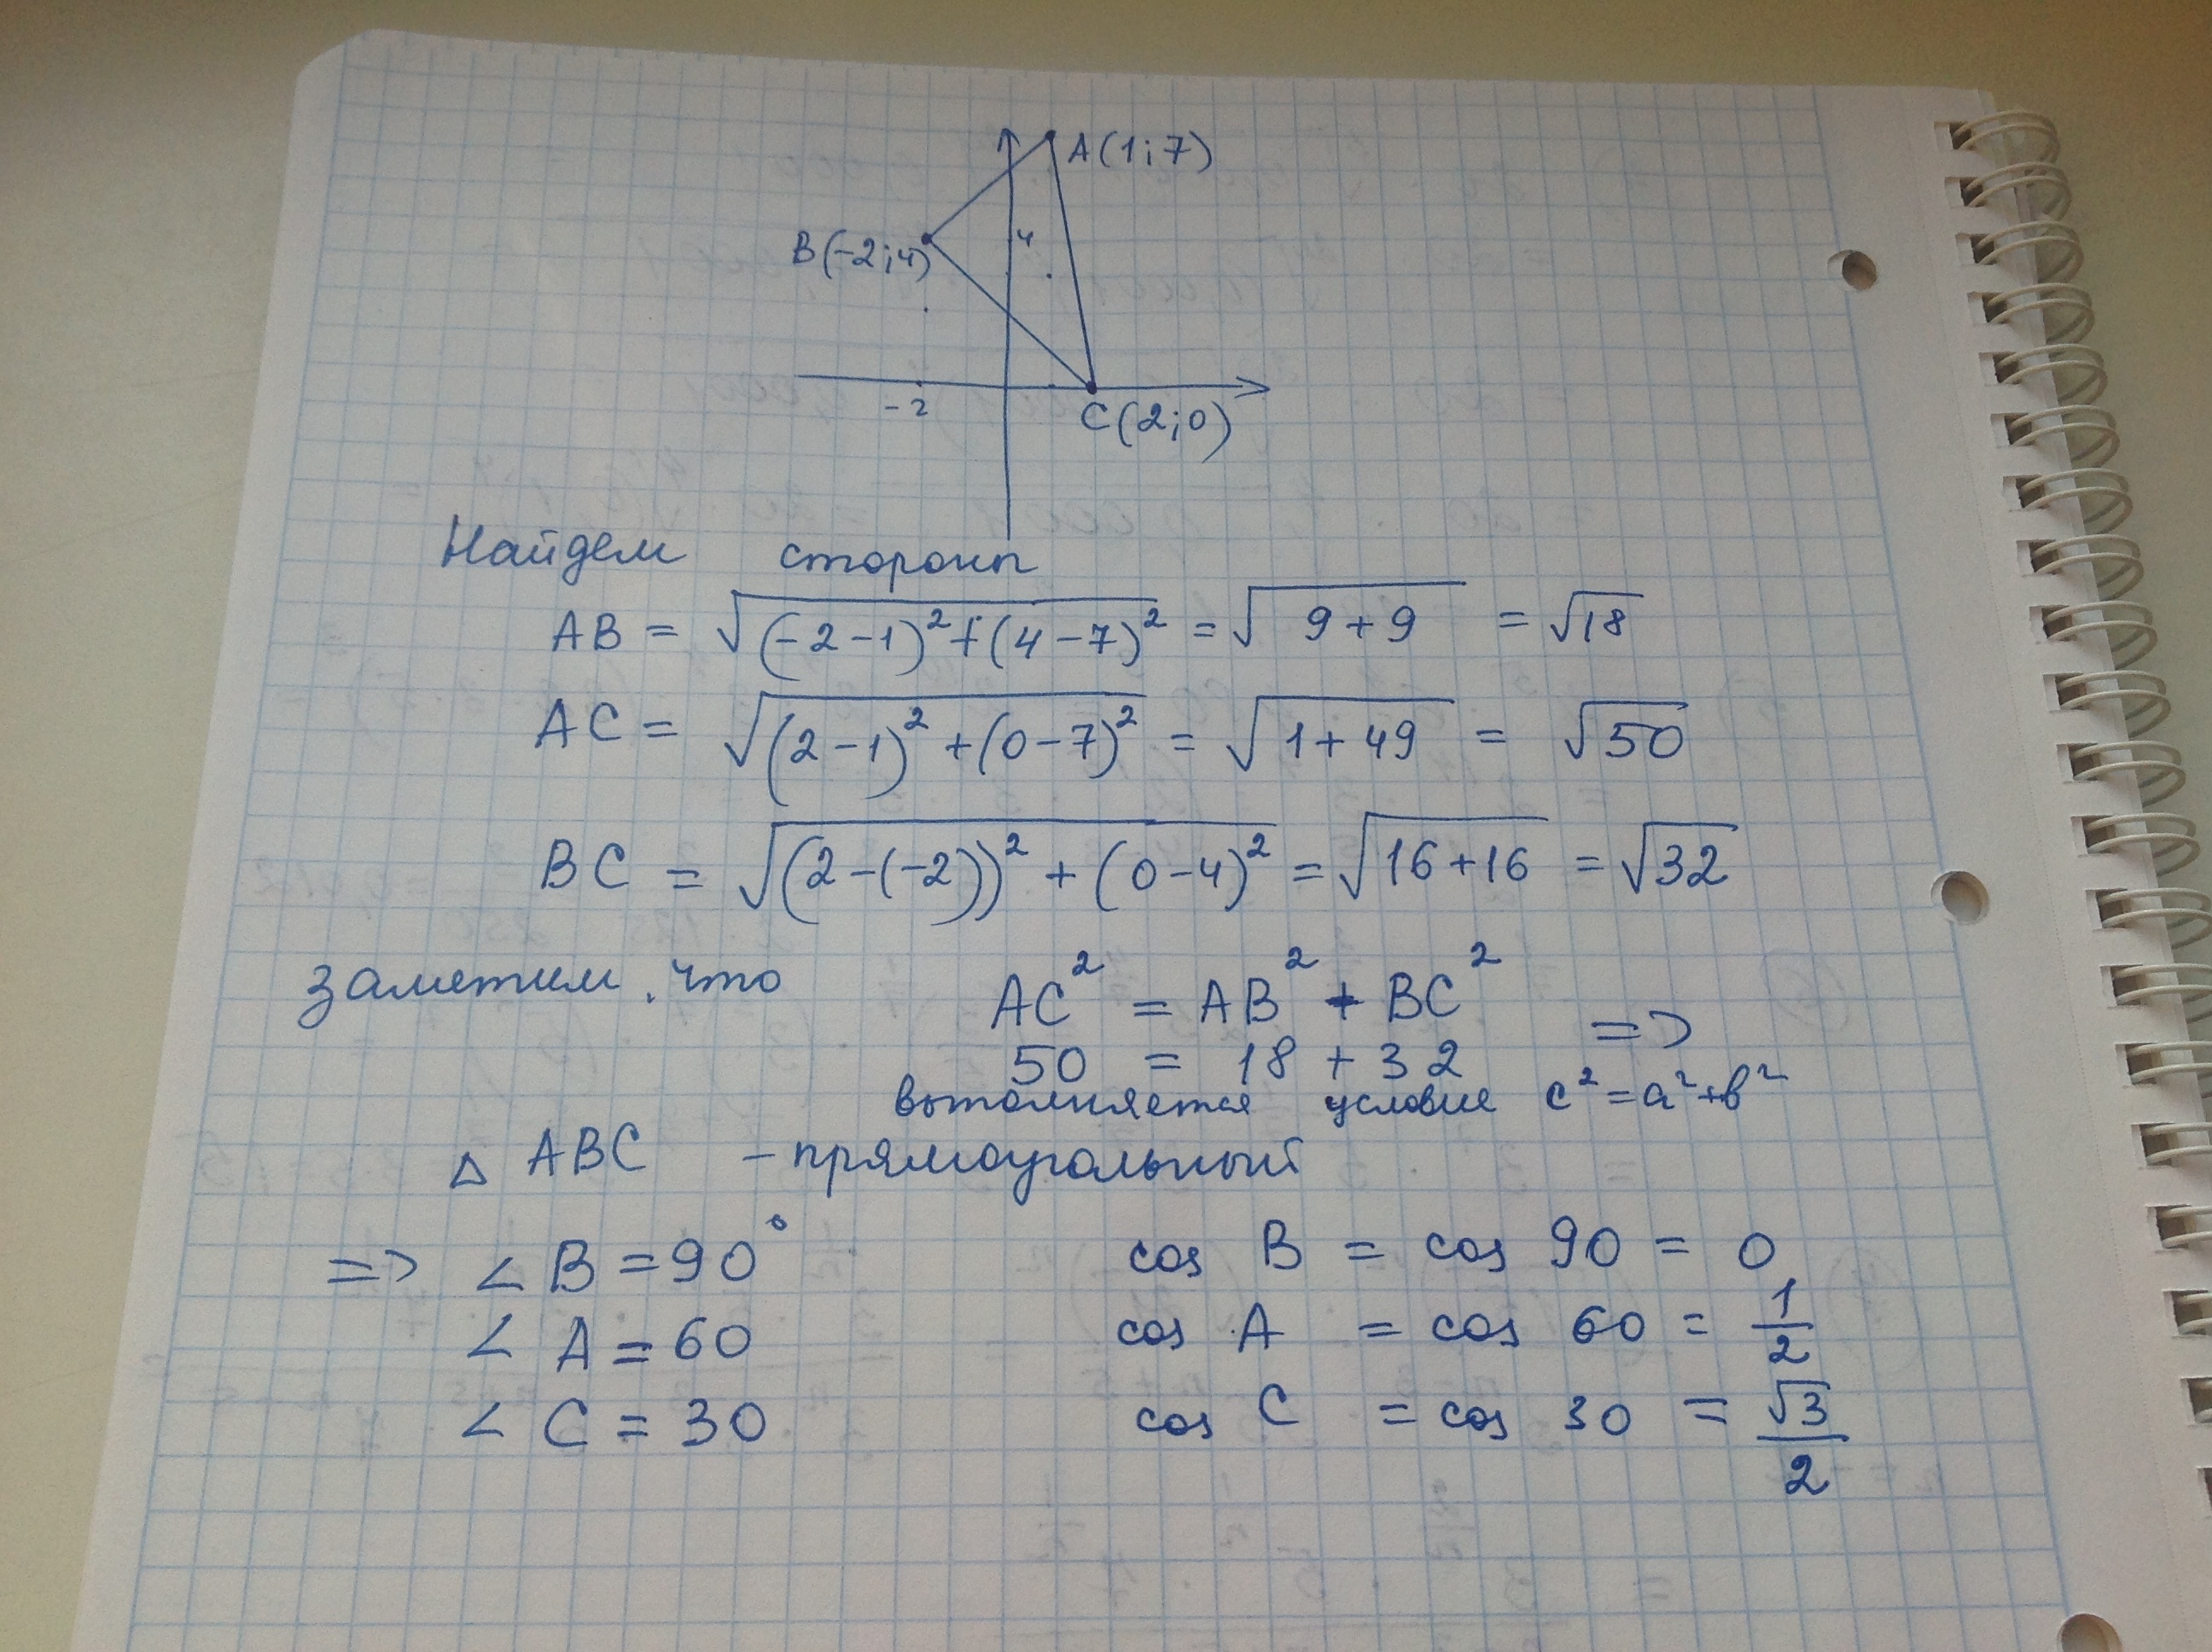 A(1;7)
B(-2;4)
4
-2
C(2;0)
Найдем стороны
AB = √((-2-1)² + (4-7)²) = √(9+9) = √18
AC = √((2-1)² + (0-7)²) = √(1+49) = √50
BC = √((2-(-2))² + (0-4)²) = √(16+16) = √32
заметим, что AC² = AB² + BC² =>
50 = 18 + 32
выполняется условие c² = a² + b²
△ ABC - прямоугольный
=> ∠ B = 90° cos B = cos 90 = 0
∠ A = 60 cos A = cos 60 = 1/2
∠ C = 30 cos C = cos 30 = √3/2